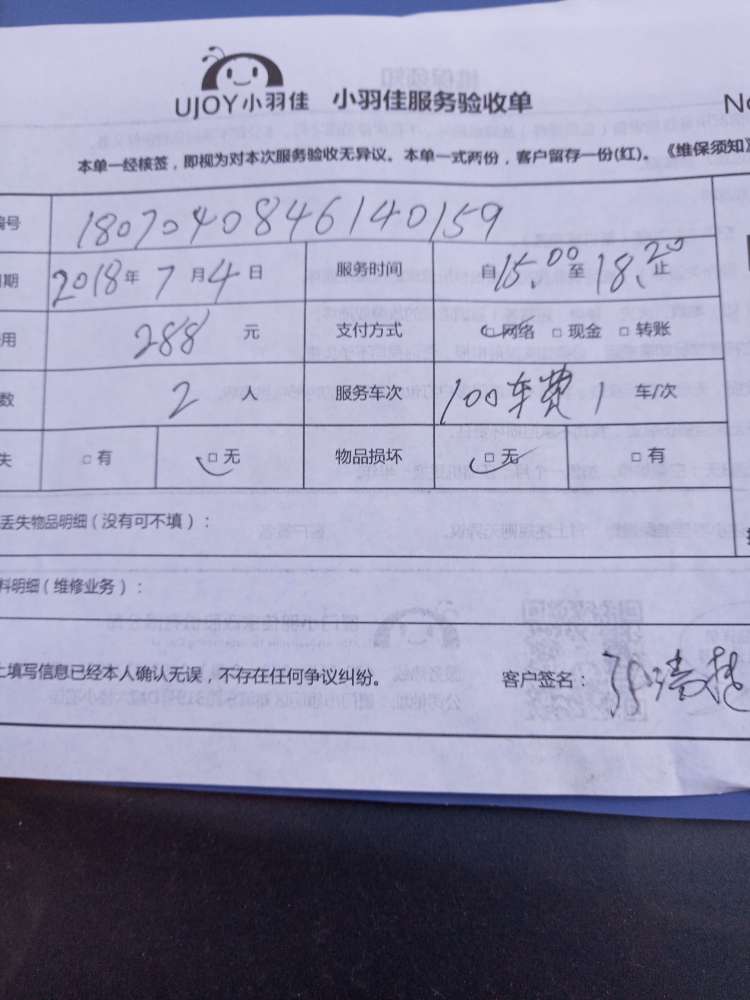 UJOY小羽佳 小羽佳服务验收单 No
本单一经核签，即视为对本次服务验收无异议。本单一式两份，客户留存一份(红)。《维保须知》
编号 180704084614 0159
期 2018年7月4日 服务时间 自15.00至18.20止
用 288 元 支付方式 □网络 □现金 □转账
数 2 人 服务车次 100车费 1 车/次
失 □有 □无 物品损坏 □无 □有
丢失物品明细（没有可不填）：
料明细（维修业务）：
上填写信息已经本人确认无误，不存在任何争议纠纷。 客户签名：